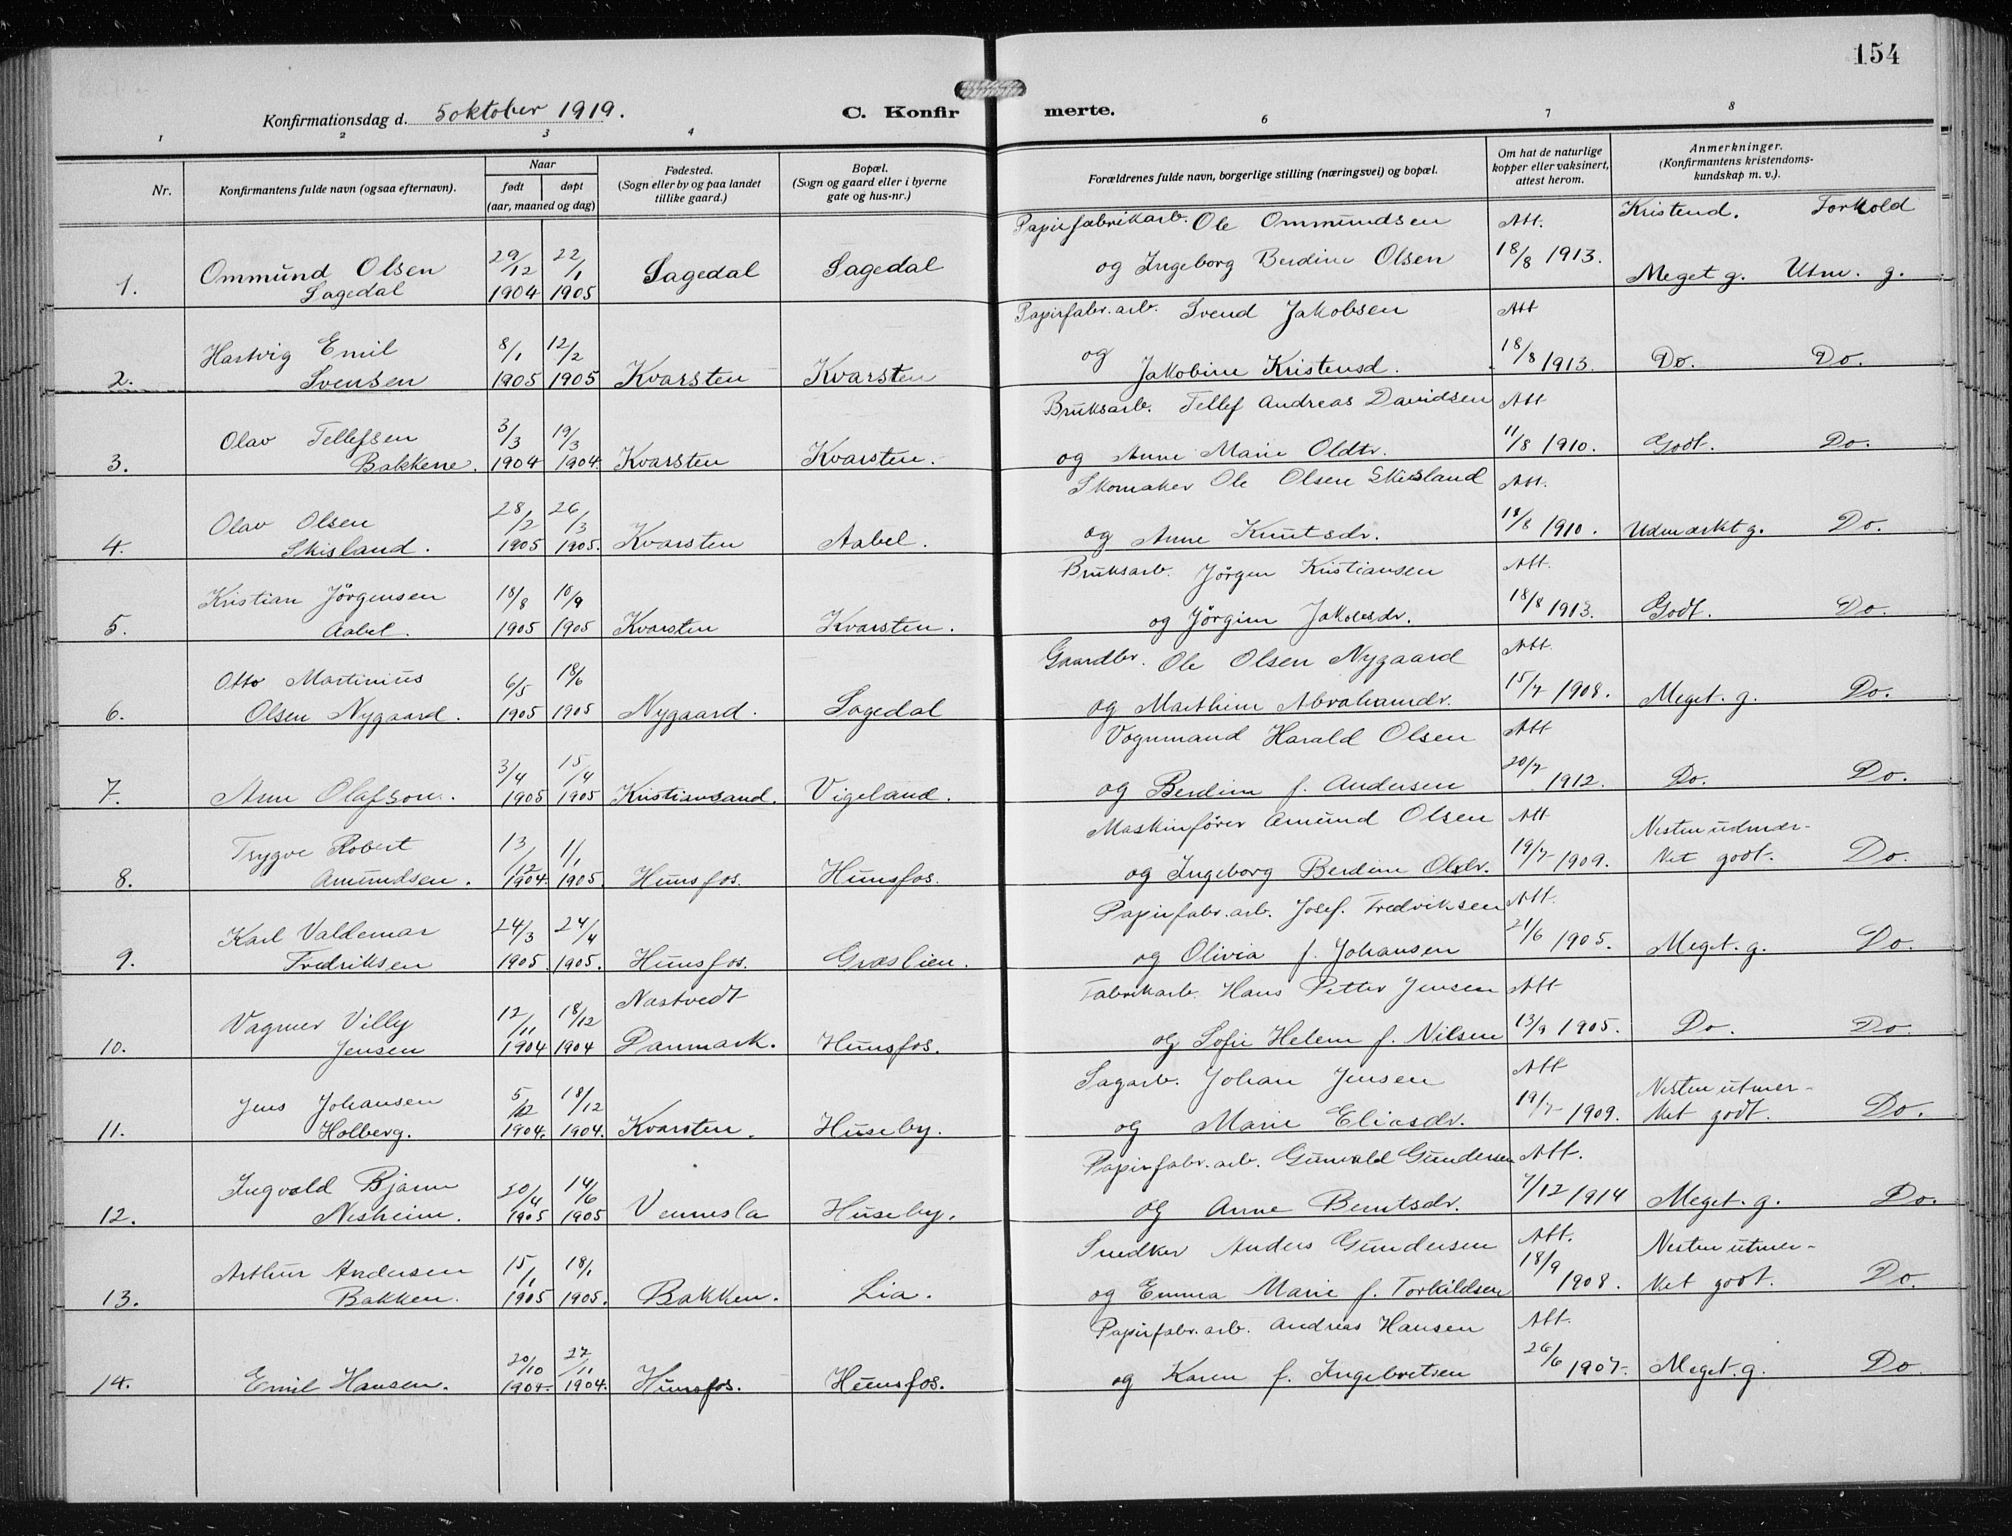 154
Konfirmationsdag d. 5 oktober 1919.
C. Konfir
merte.
1 2 3 4 6 7 8
Nr.
Konfirmantens fulde navn (ogsaa efternavn).
Naar
født døpt
(aar, maaned og dag)
Fødested.
(Sogn eller by og paa landet
tillike gaard.)
Bopæl.
(Sogn og gaard eller i byerne
gate og hus-nr.)
Forældrenes fulde navn, borgerlige stilling (næringsvei) og bopæl.
Om hat de naturlige
kopper eller vaksinert,
attest herom.
Anmerkninger.
(Konfirmantens kristendoms-
kundskap m. v.).
Kristend. Forhold
Papirfabrikarb. Ole Ommundsen Att.
1. Ommund Olsen 29/12 22/1 Sagedal Sagedal og Ingeborg Berdine Olsen 18/8 1913.
Sagedal 1904 1905 Meget g. Utm. g.
Papirfabr. arb. Svend Jakobsen Att
Hartvig Emil 8/1 12/2 og 18/8 1913. Do. Do.
2. Svensen 1905 1905 Kvarsten Kvarsten Jakobine Kristensd.
Bruksarb. Tellef Andreas Davidsen Att
Olav Tellefsen 3/3 19/3 og Anne Marie Oldtr. 11/8 1910. Godt. Do.
3. Bakkene. 1904 1904. Kvarsten Kvarsten.
Skomaker Ole Olsen Skisland Att.
Olav Olsen 28/2 26/3 og Anne Knutsdr. 18/8 1910. Udmerket g. Do.
4. Skisland. 1905 1905. Kvarsten Aabel.
Bruksarb. Jörgen Kristiansen Att.
Kristian Jörgensen 18/8 10/9 og Jörgine Jakobsdr. 18/8 1913. Godt. Do.
5. Aabel. 1905 1905 Kvarsten Kvarsten.
Gaardbr. Ole Olsen Nygaard Att.
Otto Martinius 6/5 18/6 og Marthine Abrahamdr. 15/7 1908. Meget. g. Do.
6. Olsen Nygaard. 1905 1905 Nygaard. Sagedal
Vognmand Harald Olsen Att
3/4 15/4 og Berdine f. Andersen 20/7 1912. Do. Do.
7. Arne Olafson. 1905 1905 Kristiansand. Vigeland.
Maskinförer Amund Olsen Att Nesten udmer-
Trygve Robert 13/12 1/1 og Ingeborg Berdine Olsdr. 19/7 1909. ket godt. Do.
8. Amundsen. 1904. 1905. Hunsfos. Hunsfos.
Papirfabr. arb. Josef. Fredriksen Att.
Karl Valdemar 24/3 24/4 og Olivia f. Johansen 21/6 1905. Meget. g. Do.
9. Fredriksen 1905 1905. Hunsfos. Græslien.
Fabrikarb. Hans Petter Jensen Att
Vagmer Villy 12/11 18/12 Nastvedt og Sofie Helene f. Nilsen 13/9 1905. Do. Do.
10. Jensen 1904 1904 Danmark. Hunsfos.
Sagarb. Johan Jensen Att Nesten utmer-
Jens Johansen 5/12 18/12 og Marie Eliasdr. 19/7 1909. ket godt. Do.
11. Holberg. 1904. 1904. Kvarsten. Huseby.
Papirfabr. arb. Gunvald Gundersen Att.
Ingvald Bjarne 20/4 14/6 og Anne Berntsdr. 7/12 1914 Meget. g. Do.
12. Nesheim. 1905 1905 Vennesla Huseby.
Snedker Anders Gundersen Att. Nesten utmer-
Arthur Andersen 15/1 18/1 og Emma Marie f. Torkildsen 18/9 1908. ket godt. Do.
13. Bakken. 1905 1905. Bakken. Lia.
Papirfabr. arb. Andreas Hansen Att.
20/10 27/11 og Karen f. Ingebretsen 26/6 1907. Meget. g. Do
14. Emil Hansen. 1904. 1904. Hunsfos. Hunsfos.